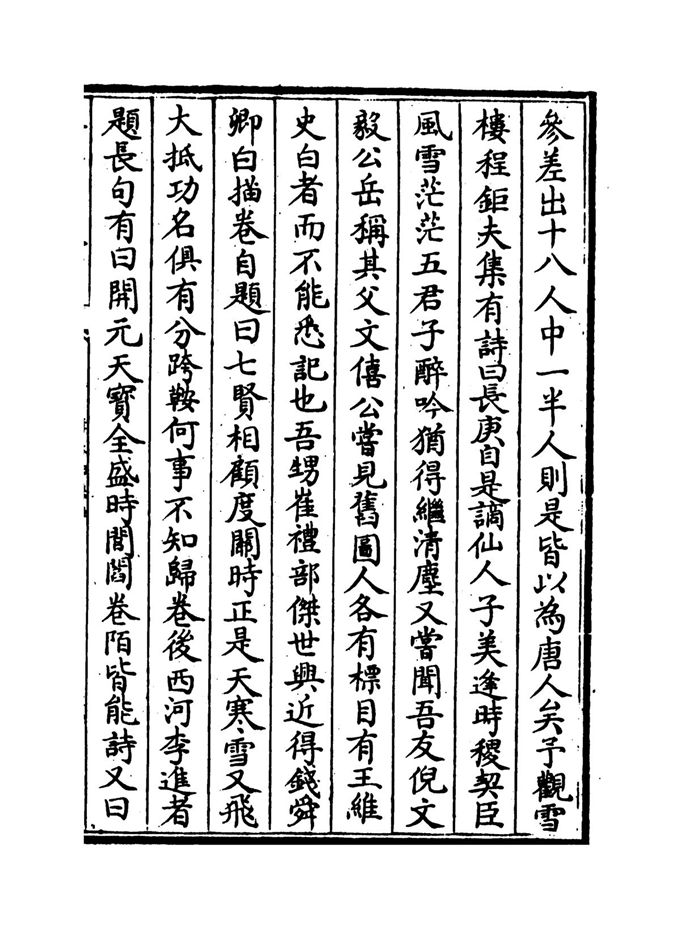 參差出十八人中一半人則是皆以為唐人矣予觀雪
樓程鉅夫集有詩曰長庚自是謫仙人子美逢時稷契臣
風雪茫茫五君子醉吟猶得繼清塵又嘗聞吾友倪文
毅公岳稱其父文僖公嘗見舊圖人各有標目有王維
史白者而不能悉記也吾甥崔禮部傑世興近得錢舜
卿白描卷自題曰七賢相顧度關時正是天寒雪又飛
大抵功名俱有分跨鞍何事不知歸卷後西河李進者
題長句有曰開元天寶全盛時閭閻巷陌皆能詩又曰